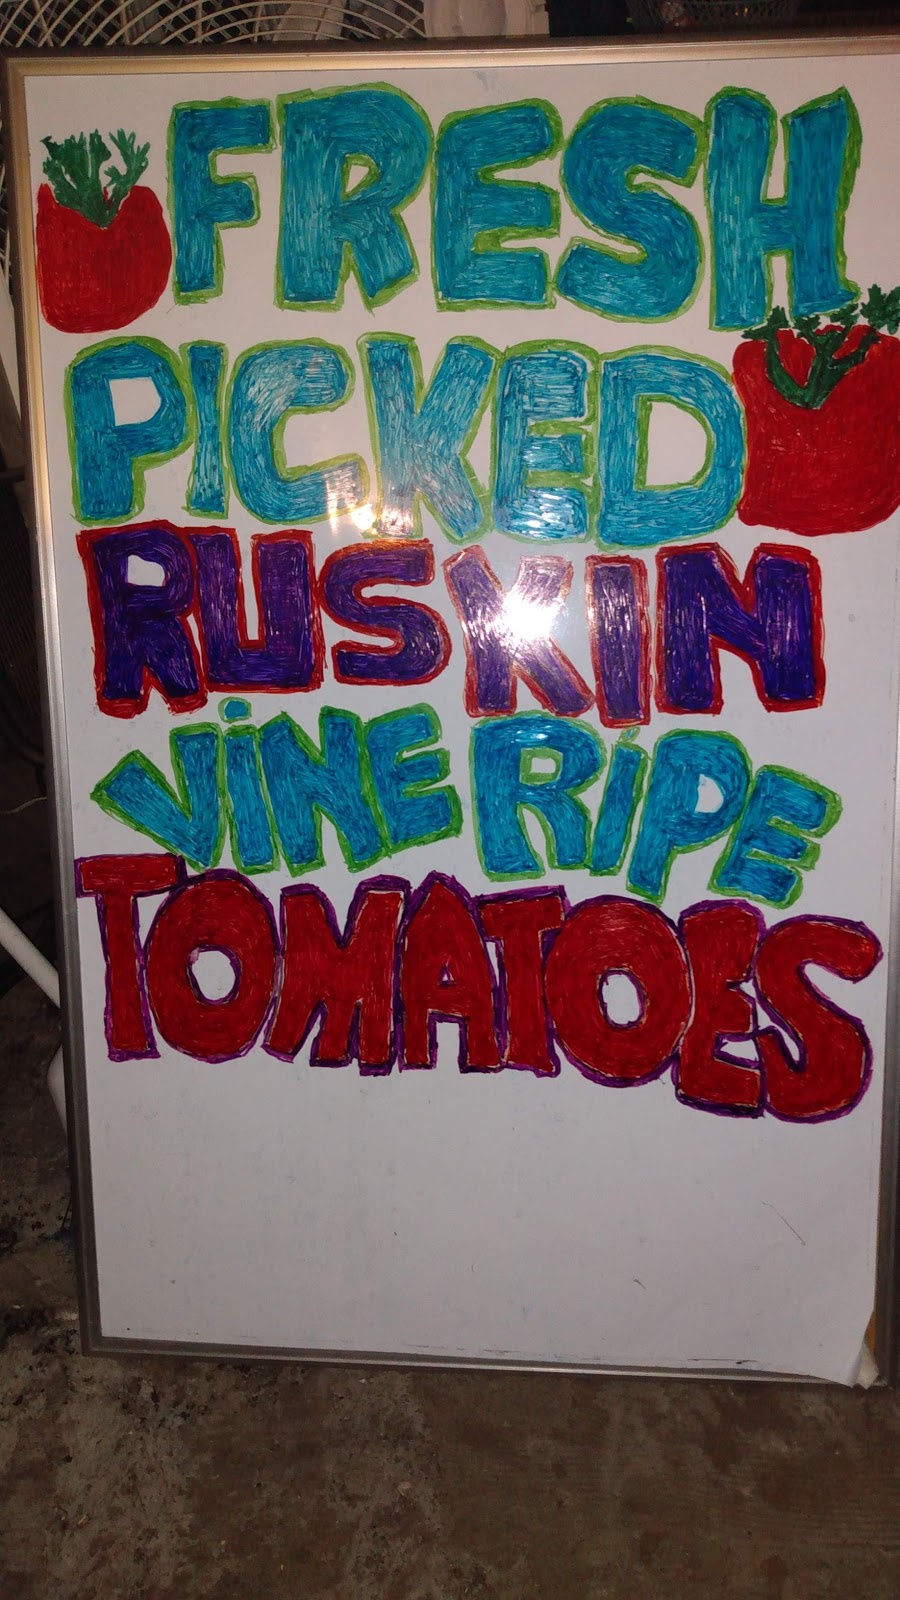 FRESH
PICKED
RUSKIN
ViNE RiPE
TOMATOES